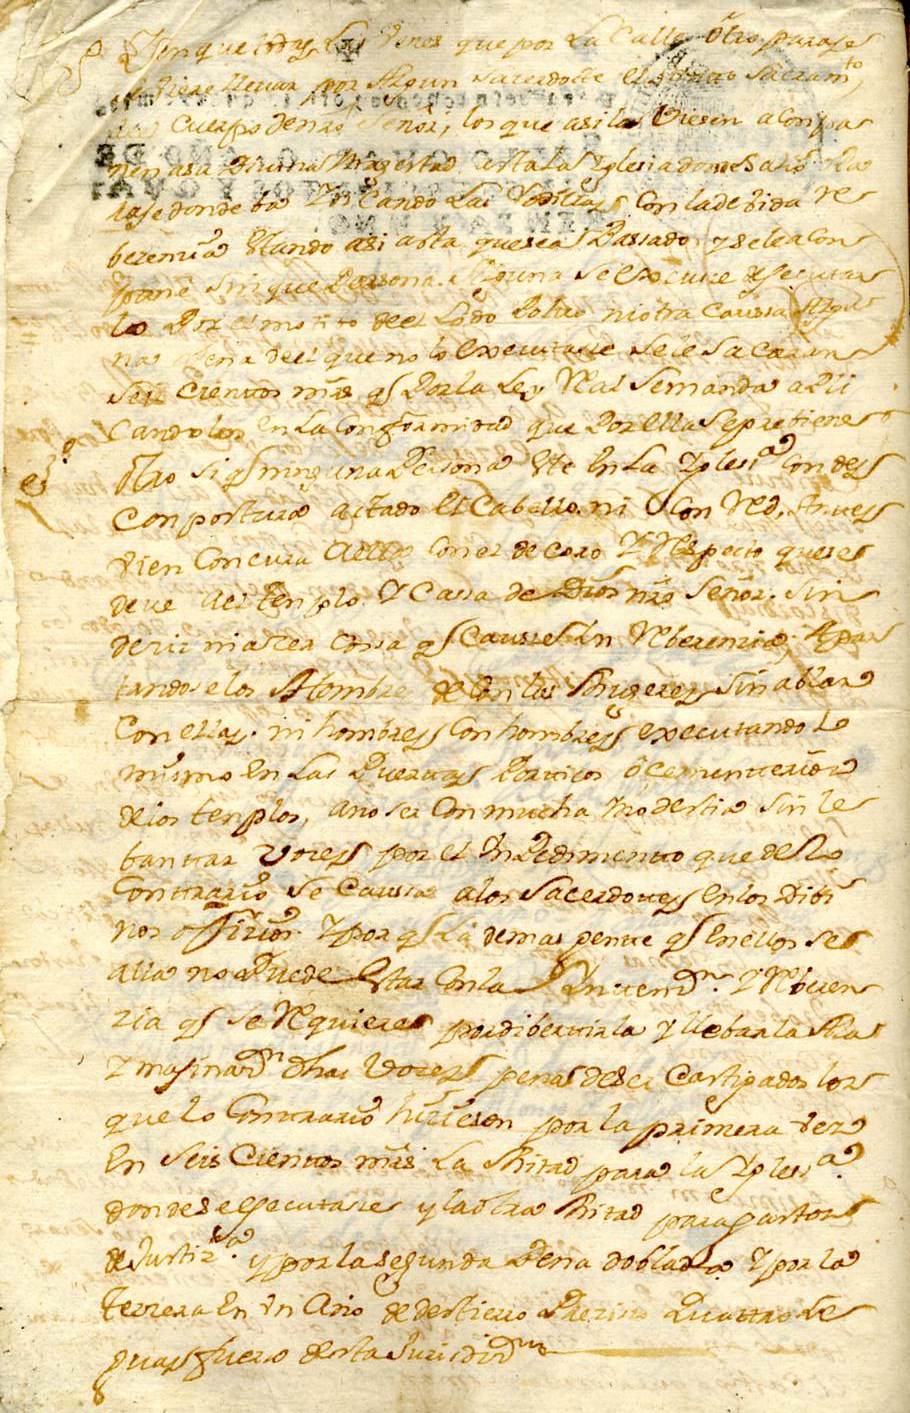 Yten que todas las veces que por la Calle ô otro paraje
se biere llevar por Algun sacerdote el santo sacramto
Cuerpo de nro Señor, los que asi las Viesen acompa
ñen a su Divina Magestad asta la Yglesia donde salio
donde ba Yncando las Rodillas con la devida Re
berencia estando asi asta que sea Passado y se le acom
pañe sin que Persona Alguna se escuse ejecutar
lo por el motivo de el Lodo Polvo ni otra Caussa Algu
na pena de el que no lo executare se le sacaran
seis Cientos mrs q Por la Ley Real se manda apli
candolos En la Conformidad que Por ella se previene
otro si q ninguna Persona este En la Yglesia Con des
Compostura atado el Cabello ni Con Red, Antes
vien Concurra a ella Con el decoro Y Respecto que se
deve al templo Y Cassa de Dios nro Señor, sin
decir ni acer Cossa q Causse Yn Reberencia, Apar
tandose los Hombres de con las Mugeres sin ablar
Con ellas, ni hombres Con hombres executando lo
mismo En las Puertas Porticos ô Cementerios
de los templos, a no ser Con mucha Modestia sin le
bantar Voces por el Ynpedimento que de lo
Contrario se Caussa a los Sacerdotes En los Divi
nos offizios Y por q la demas gente q En ellos se
alla no Puede Estar Con la Y Reberen
zia q se Requiere por dibertirla y llebarla la
Y maginazn dhas Voces pena de ser Castigados los
que lo Contrario hizieren por la primera vez
En seis Cientos mrs la Mitad para la Yglesia
donde se ejecutare y la otra Mitad para gastos
de Justizia y por la segunda Pena doblada Y por la
terzera En Un Año de destierro Preziso quatro le
guas fuera de esta Jurisdizn